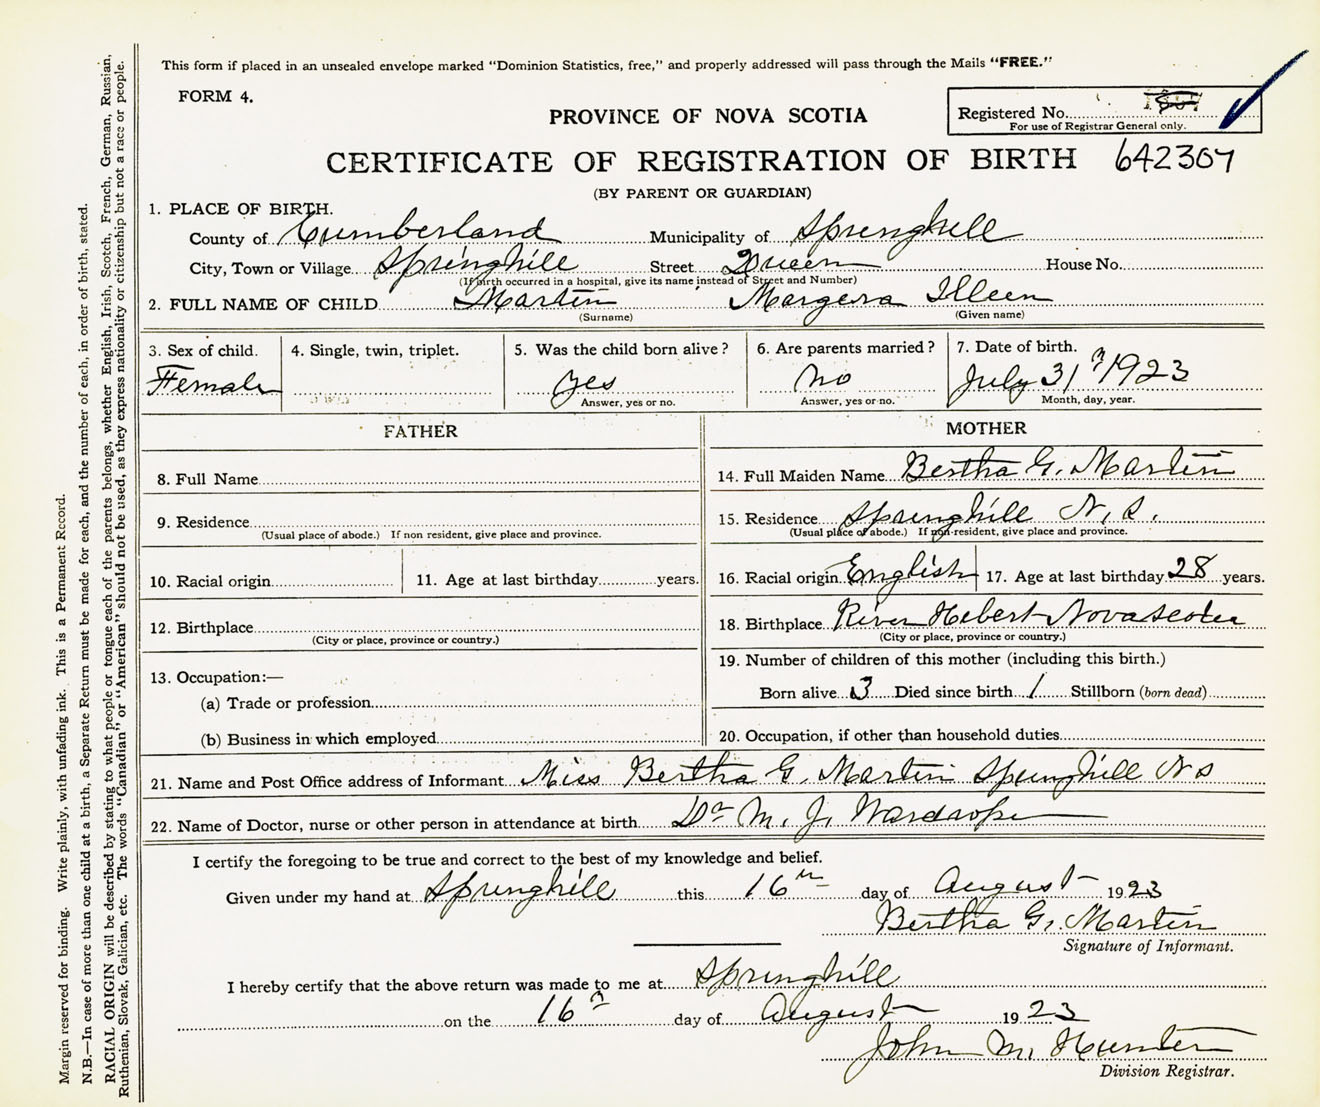 This form if placed in an unsealed envelope marked "Dominion Statistics, free," and properly addressed will pass through the Mails "FREE."
FORM 4.
Registered No.
For use of Registrar General only.
PROVINCE OF NOVA SCOTIA
CERTIFICATE OF REGISTRATION OF BIRTH 642307
(BY PARENT OR GUARDIAN)
1. PLACE OF BIRTH.
County of Cumberland Municipality of Springhill
City, Town or Village Springhill Street Queen House No.
(If birth occurred in a hospital, give its name instead of Street and Number)
2. FULL NAME OF CHILD Martin Illeen
(Surname) (Given name)
3. Sex of child. 4. Single, twin, triplet. 5. Was the child born alive? 6. Are parents married? 7. Date of birth.
Female yes no July 31 1923
Answer, yes or no. Answer, yes or no. Month, day, year.
FATHER
8. Full Name
9. Residence
(Usual place of abode.) If non resident, give place and province.
10. Racial origin 11. Age at last birthday years.
12. Birthplace
(City or place, province or country.)
13. Occupation:—
(a) Trade or profession
(b) Business in which employed
MOTHER
14. Full Maiden Name Bertha G. Martin
15. Residence Springhill N. S.
(Usual place of abode.) If non-resident, give place and province.
16. Racial origin English 17. Age at last birthday 28 years.
18. Birthplace River Hebert Nova Scotia
(City or place, province or country.)
19. Number of children of this mother (including this birth.)
Born alive 3 Died since birth 1 Stillborn (born dead)
20. Occupation, if other than household duties
21. Name and Post Office address of Informant Miss Bertha G. Martin Springhill N S
22. Name of Doctor, nurse or other person in attendance at birth Dr M. J. Wardrope
I certify the foregoing to be true and correct to the best of my knowledge and belief.
Given under my hand at Springhill this 16th day of August 1923
Bertha G. Martin
Signature of Informant.
I hereby certify that the above return was made to me at Springhill
on the 16 day of August 1923
John M. Hunter
Division Registrar.
Margin reserved for binding. Write plainly, with unfading ink. This is a Permanent Record.
N.B.—In case of more than one child at a birth, a Separate Return must be made for each, and the number of each, in order of birth, stated.
RACIAL ORIGIN will be described by stating to what people or tongue each of the parents belongs, whether English, Irish, Scotch, French, German, Russian,
Ruthenian, Slovak, Galician, etc. The words "Canadian" or "American" should not be used, as they express nationality or citizenship but not a race or people.